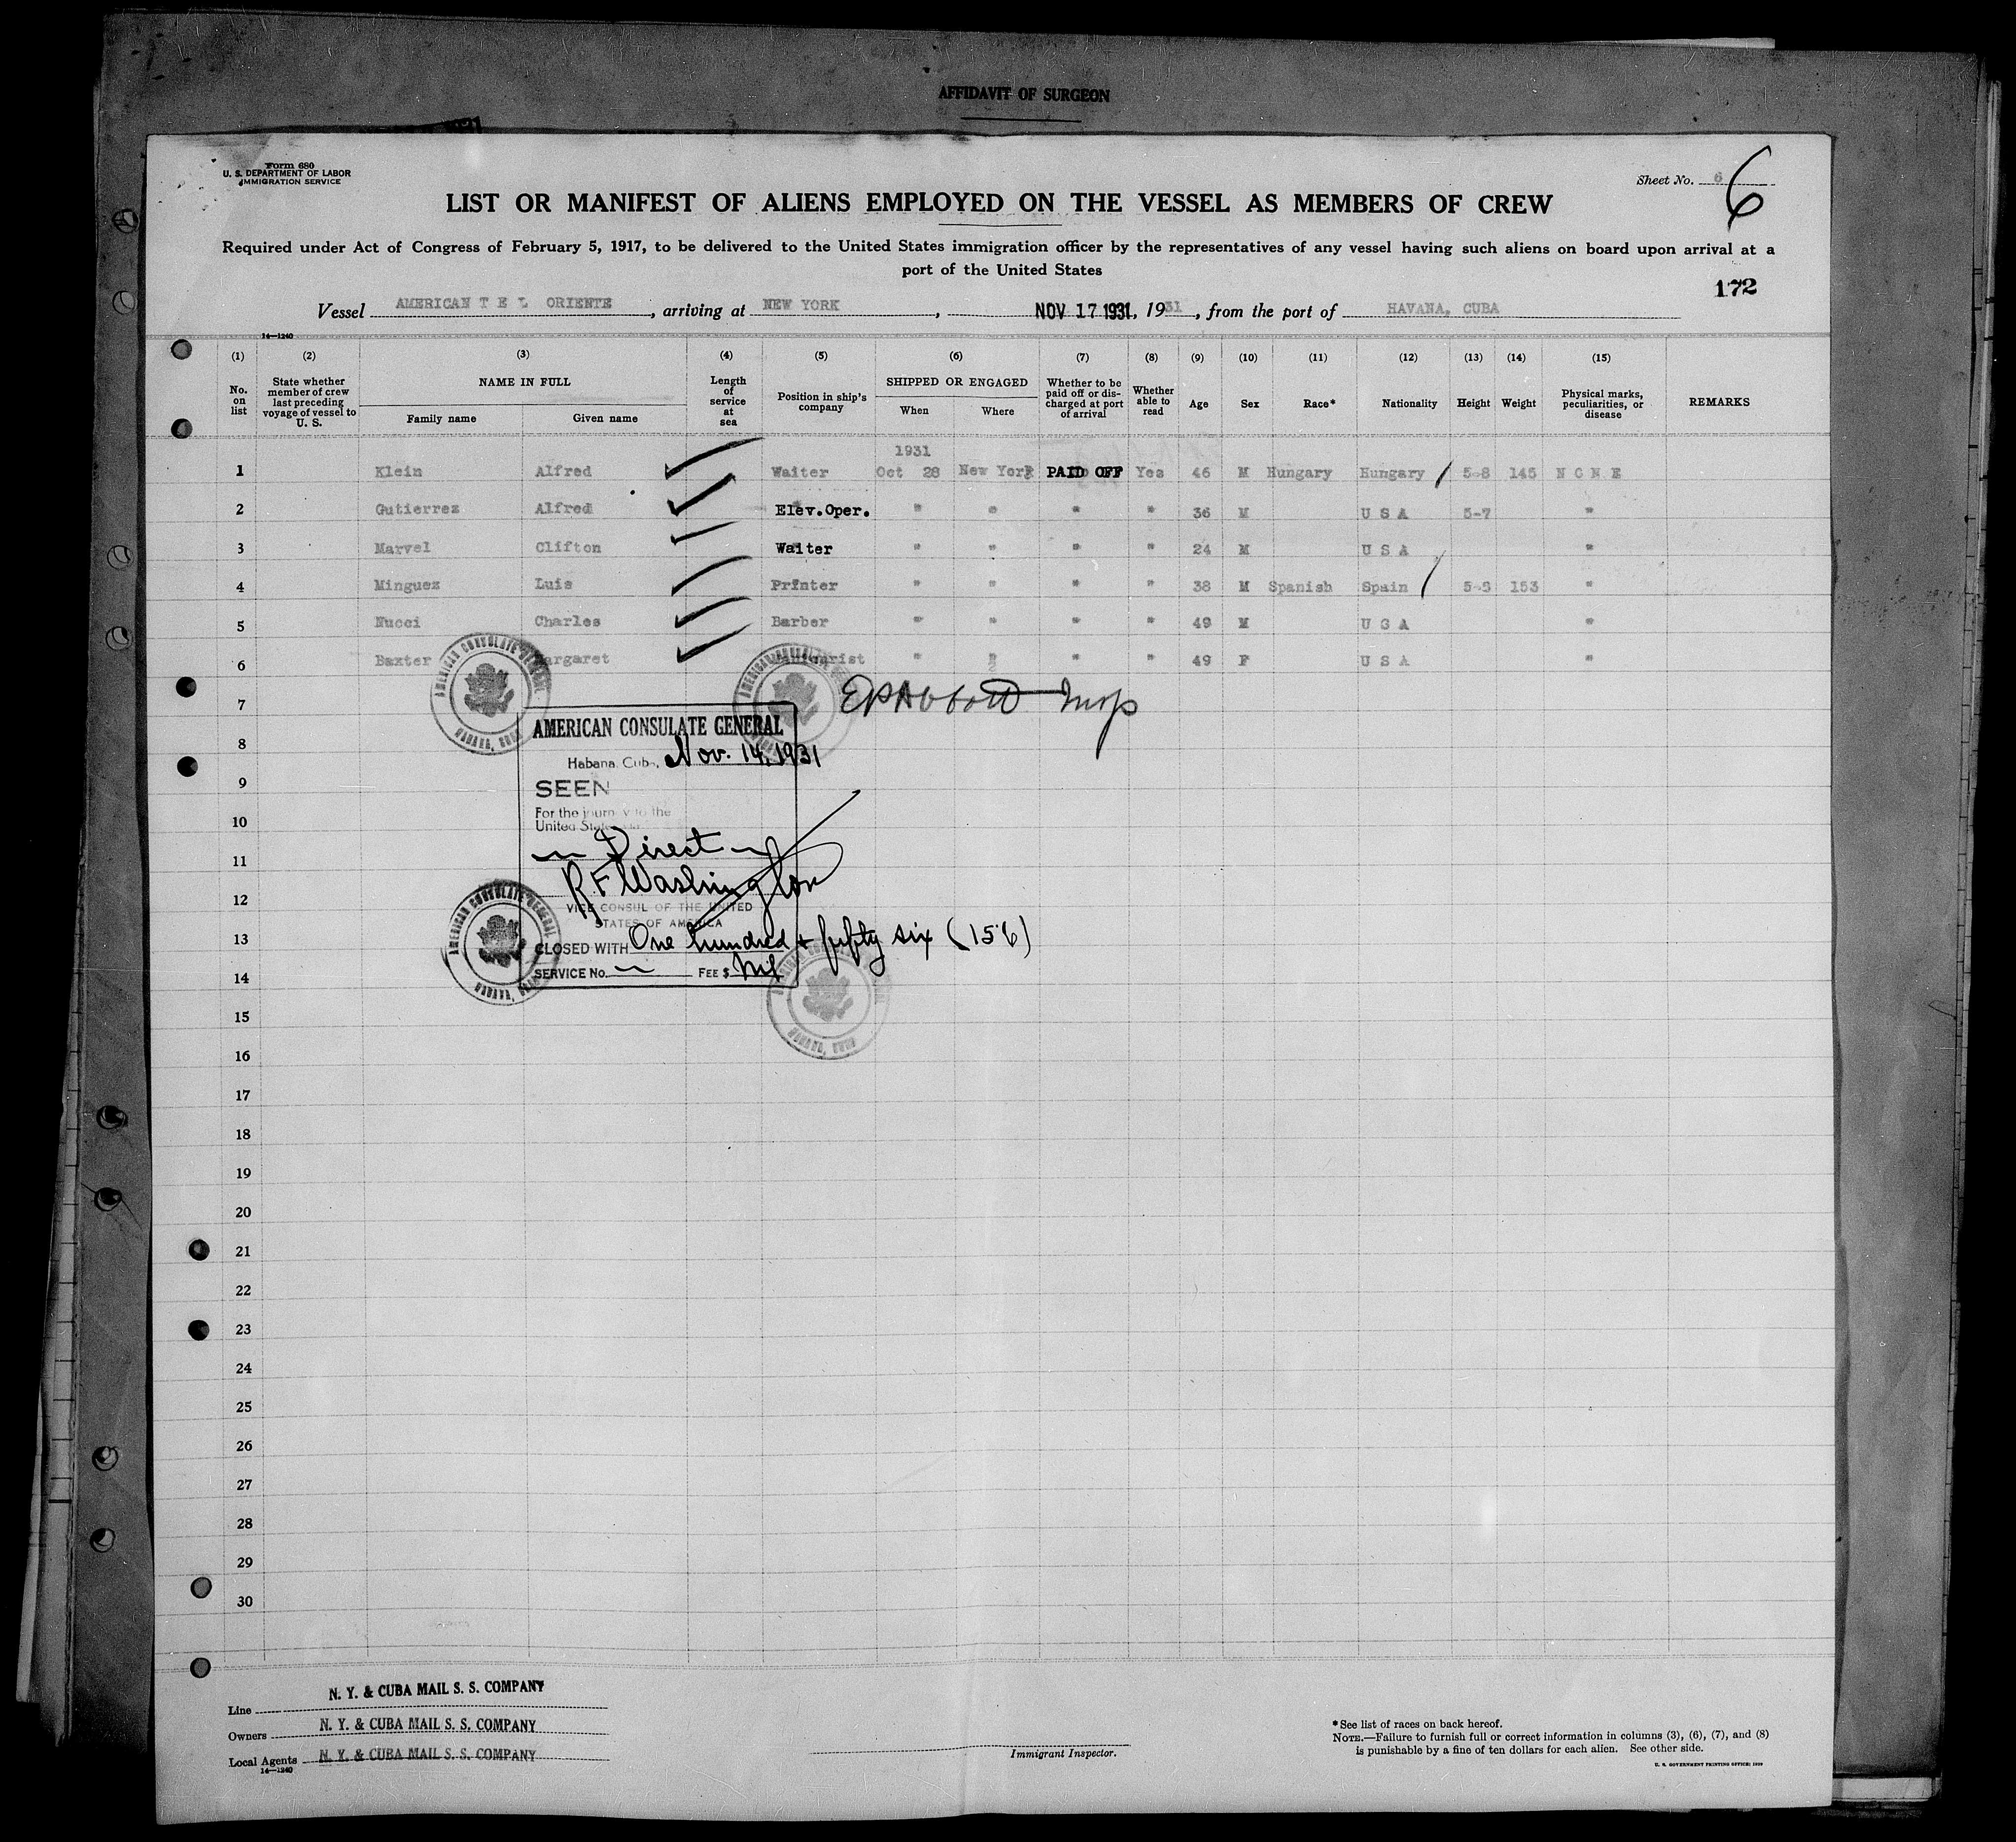 AFFIDAVIT OF SURGEON
Form 680
U. S. DEPARTMENT OF LABOR
IMMIGRATION SERVICE
Sheet No. 6
6
LIST OR MANIFEST OF ALIENS EMPLOYED ON THE VESSEL AS MEMBERS OF CREW
Required under Act of Congress of February 5, 1917, to be delivered to the United States immigration officer by the representatives of any vessel having such aliens on board upon arrival at a
port of the United States
172
Vessel AMERICAN T E L ORIENTE, arriving at NEW YORK, NOV 17 1931, 1931, from the port of HAVANA, CUBA
14—1240
(1) (2) (3) (4) (5) (6) (7) (8) (9) (10) (11) (12) (13) (14) (15)
No. on list
State whether member of crew last preceding voyage of vessel to U. S.
NAME IN FULL
Family name Given name
Length of service at sea
Position in ship's company
SHIPPED OR ENGAGED
When Where
Whether to be paid off or discharged at port of arrival
Whether able to read
Age Sex Race* Nationality Height Weight
Physical marks, peculiarities, or disease
REMARKS
1931
1 Klein Alfred Waiter Oct 28 New York PAID OFF Yes 46 M Hungary Hungary 5-8 145 N O N E
2 Gutierrez Alfred Elev.Oper. " " " " 36 M U S A 5-7 "
3 Marvel Clifton Waiter " " " " 24 M U S A "
4 Minguez Luis Printer " " " " 38 M Spanish Spain 153 "
5 Nucci Charles Barber " " " " 49 M U S A "
6 Baxter Margaret " " " " 49 F U S A "
7 EPAbbott Insp
8
9
10
11
12
13
14
15
16
17
18
19
20
21
22
23
24
25
26
27
28
29
30
AMERICAN CONSULATE GENERAL
HABANA, CUBA
AMERICAN CONSULATE GENERAL
AMERICAN CONSULATE GENERAL
Habana, Cuba, Nov. 14, 1931
SEEN
For the journey to the
United States
Direct
R F Washington
VICE CONSUL OF THE UNITED
STATES OF AMERICA
CLOSED WITH One hundred & fifty six (156)
SERVICE No. FEE $ Nil
AMERICAN CONSULATE GENERAL
HABANA, CUBA
HABANA, CUBA
Line N. Y. & CUBA MAIL S. S. COMPANY
Owners N. Y. & CUBA MAIL S. S. COMPANY
Local Agents N. Y. & CUBA MAIL S. S. COMPANY
14—1240
Immigrant Inspector.
*See list of races on back hereof.
NOTE.—Failure to furnish full or correct information in columns (3), (6), (7), and (8)
is punishable by a fine of ten dollars for each alien. See other side.
U. S. GOVERNMENT PRINTING OFFICE: 1929